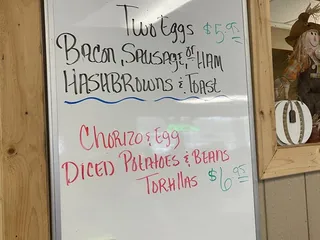 Two Eggs $5.95
Bacon, Sausage, or Ham
Hashbrowns & Toast
Chorizo & Egg
Diced Potatoes & Beans
Tortillas $6.95